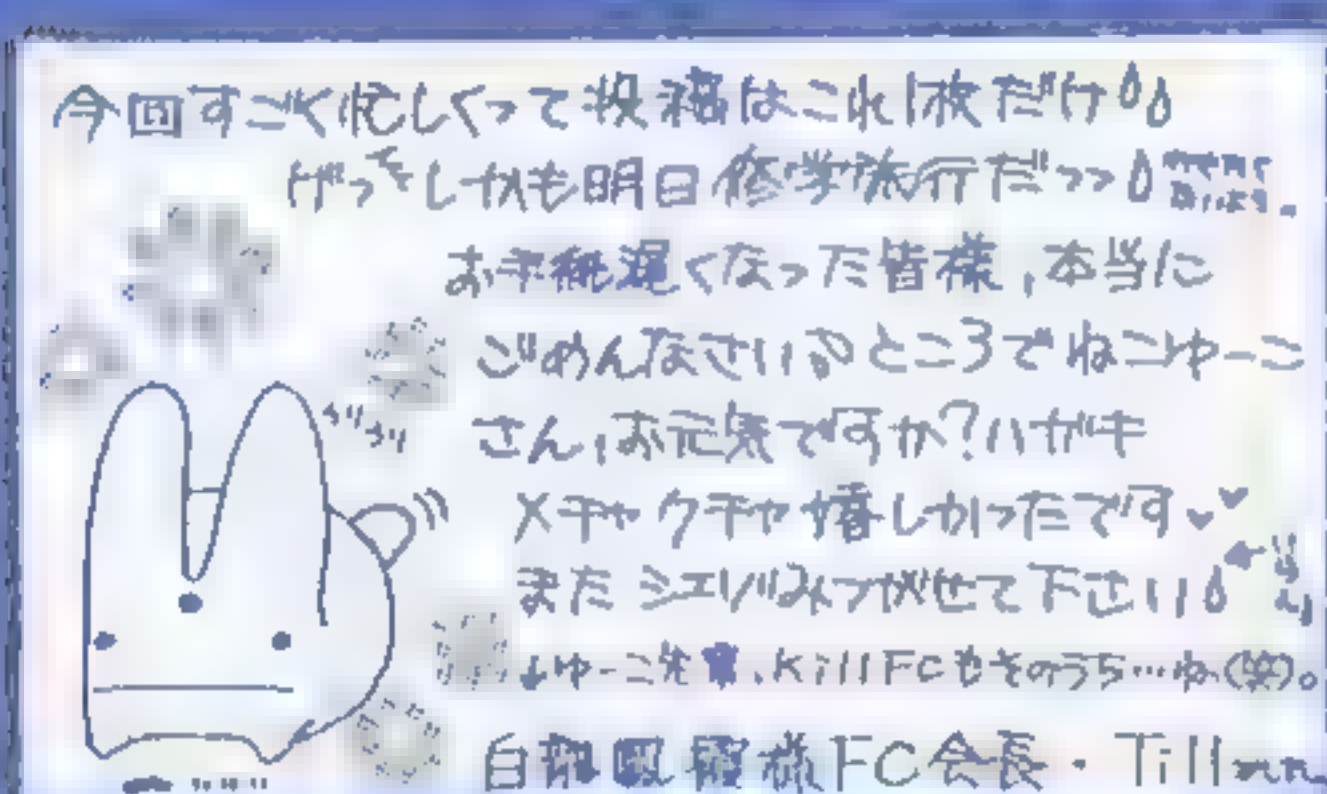 今回すごく忙しくって投稿はこれ1枚だけ
げっでしかも明日修学旅行だっっ
お手紙遅くなった皆様,本当に
ごめんなさい ところでねこゆーこ
さん,お元気ですか?ハガキ
メチャクチャ嬉しかったです
また シエルみつがせて下さい
ゆーこ先輩、KillFCもそのうち…ね(笑)。
様FC会長・Till